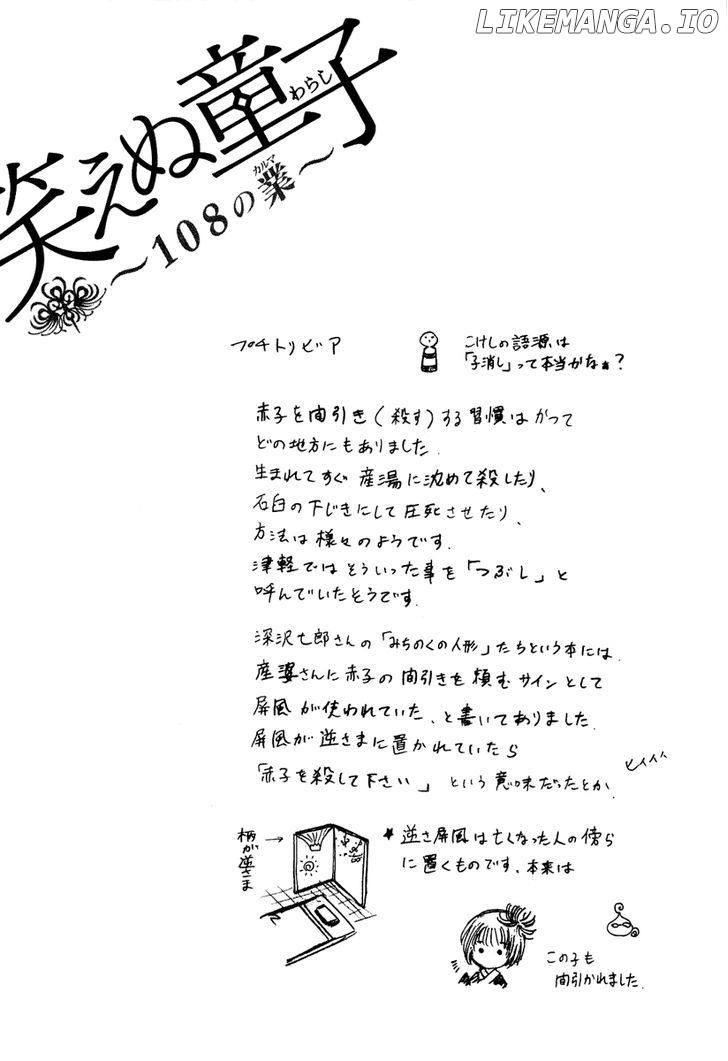 LIKEMANGA.IO
笑えぬ童子
わらし
〜108の業〜
カルマ
プチトリビア
こけしの語源は
「子消し」って本当かなぁ?
赤子を間引き(殺す)する習慣はかつて
どの地方にもありました.
生まれてすぐ産湯に沈めて殺したり、
石臼の下じきにして圧死させたり、
方法は様々のようです.
津軽ではそういった事を「つぶし」と
呼んでいたそうです.
深沢七郎さんの「みちのくの人形」たちという本には、
産婆さんに赤子の間引きを頼むサインとして
屏風が使われていた、と書いてありました.
屏風が逆さまに置かれていたら
「赤子を殺して下さい」という意味だったとか.
ヒイイイ
柄が逆さま
→
★逆さ屏風は亡くなった人の傍ら
に置くものです、本来は
この子も
間引かれました.